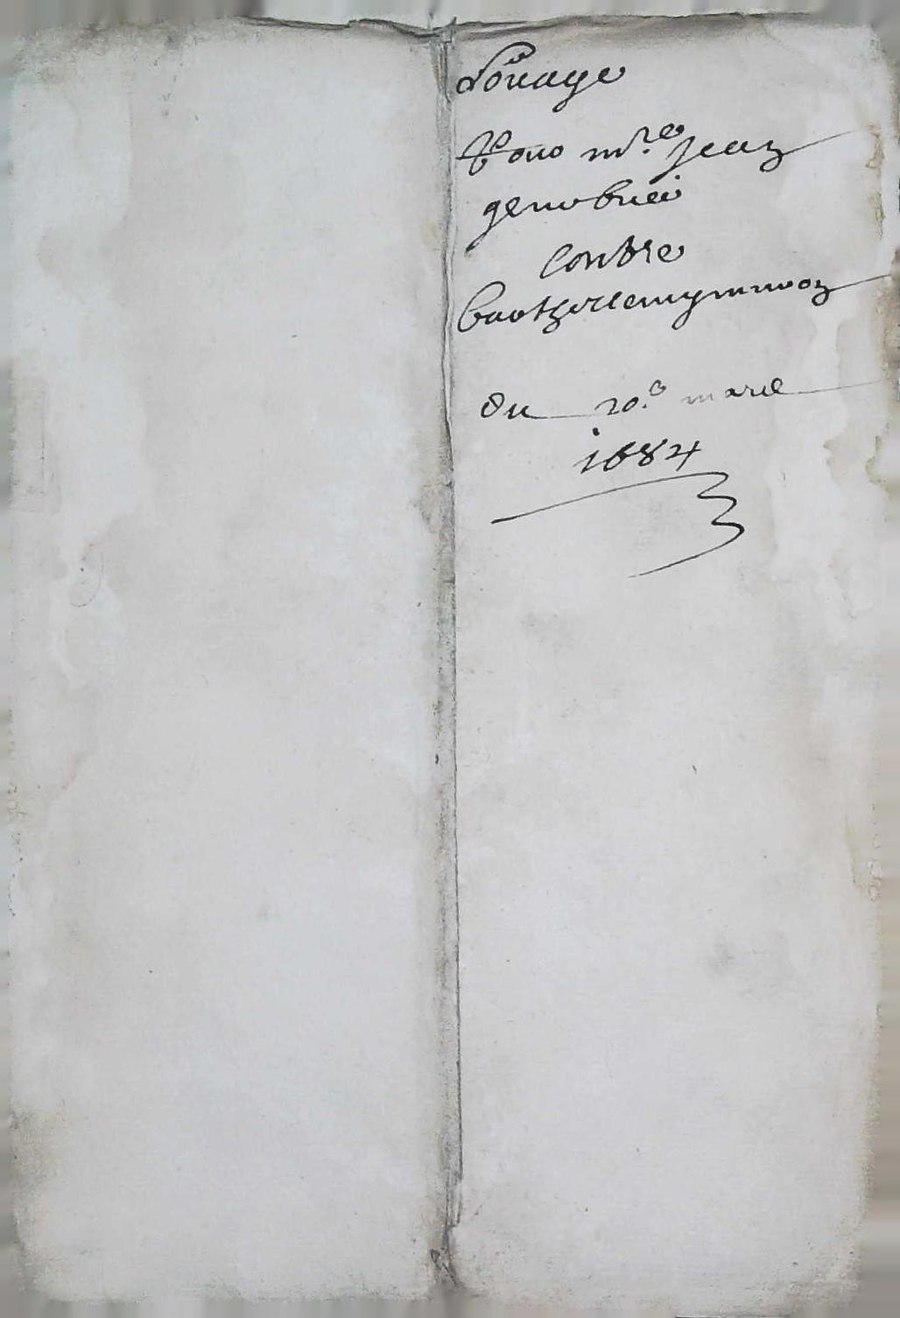 Louage
Pour mre Jean
genebrier
Contre
barthellemy
du 20e mars
1684